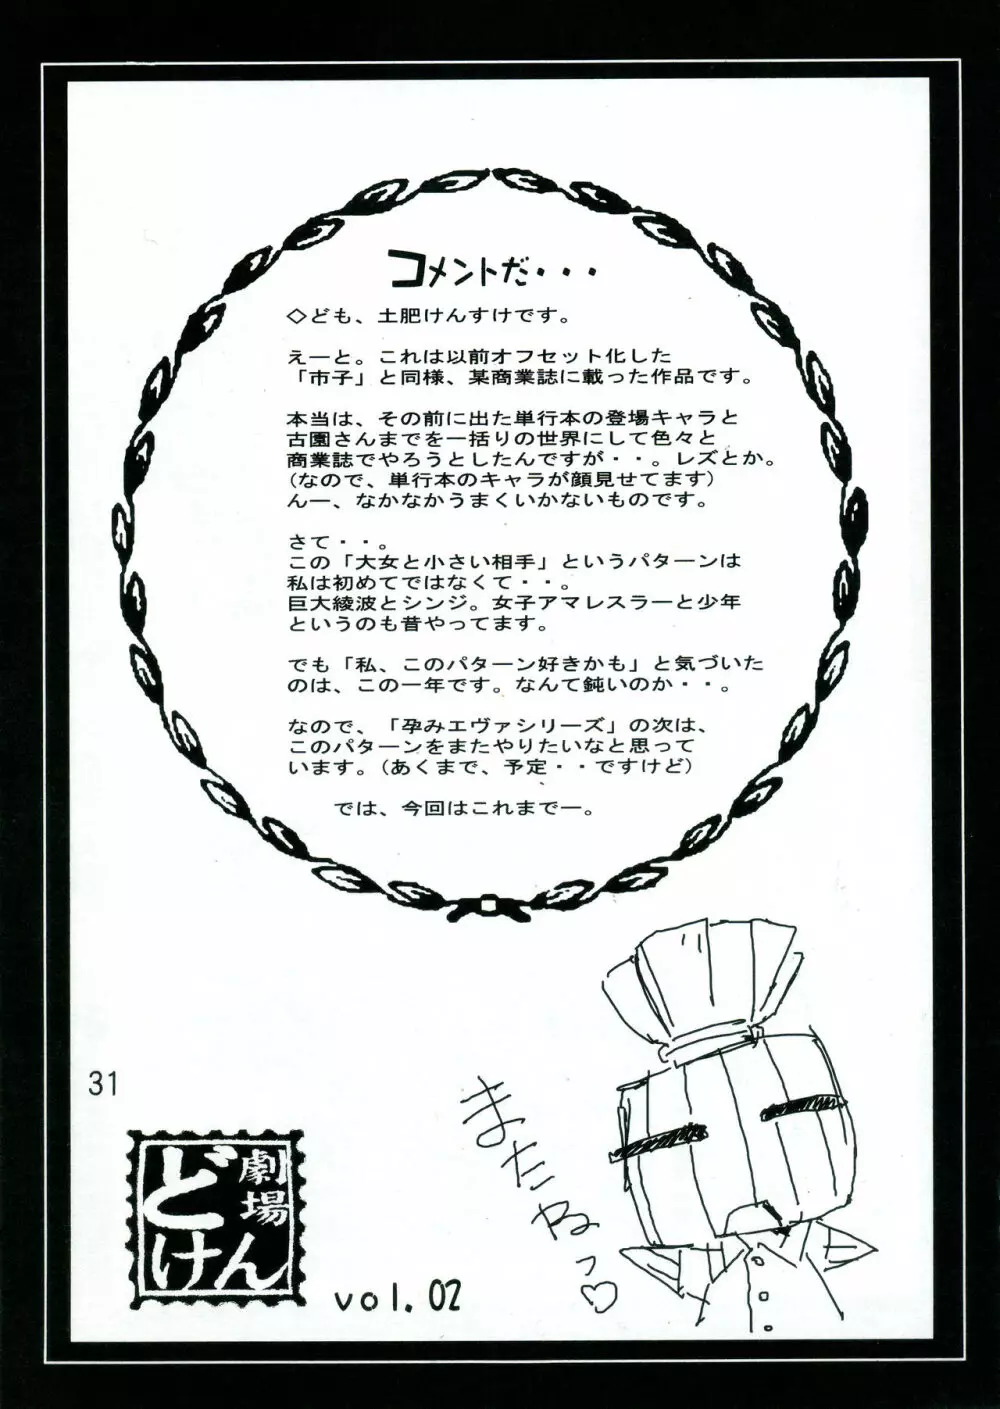 コメントだ・・・
◇ども、土肥けんすけです。
えーと。これは以前オフセット化した
「市子」と同様、某商業誌に載った作品です。
本当は、その前に出た単行本の登場キャラと
古園さんまでを一括りの世界にして色々と
商業誌でやろうとしたんですが・・。レズとか。
(なので、単行本のキャラが顔見せてます)
んー、なかなかうまくいかないものです。
さて・・。
この「大女と小さい相手」というパターンは
私は初めてではなくて・・。
巨大綾波とシンジ。女子アマレスラーと少年
というのも昔やってます。
でも「私、このパターン好きかも」と気づいた
のは、この一年です。なんて鈍いのか・・。
なので、「孕みエヴァシリーズ」の次は、
このパターンをまたやりたいなと思って
います。(あくまで、予定・・ですけど)
では、今回はこれまでー。
またねっ♡
31
劇場
どけん
vol.02